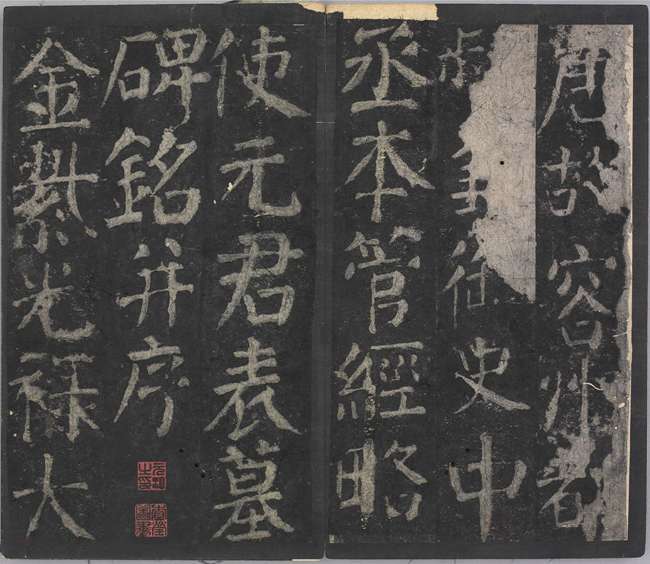 故容州都
御史中
丞本管經略
使元君表墓
碑銘并序
金紫光祿大